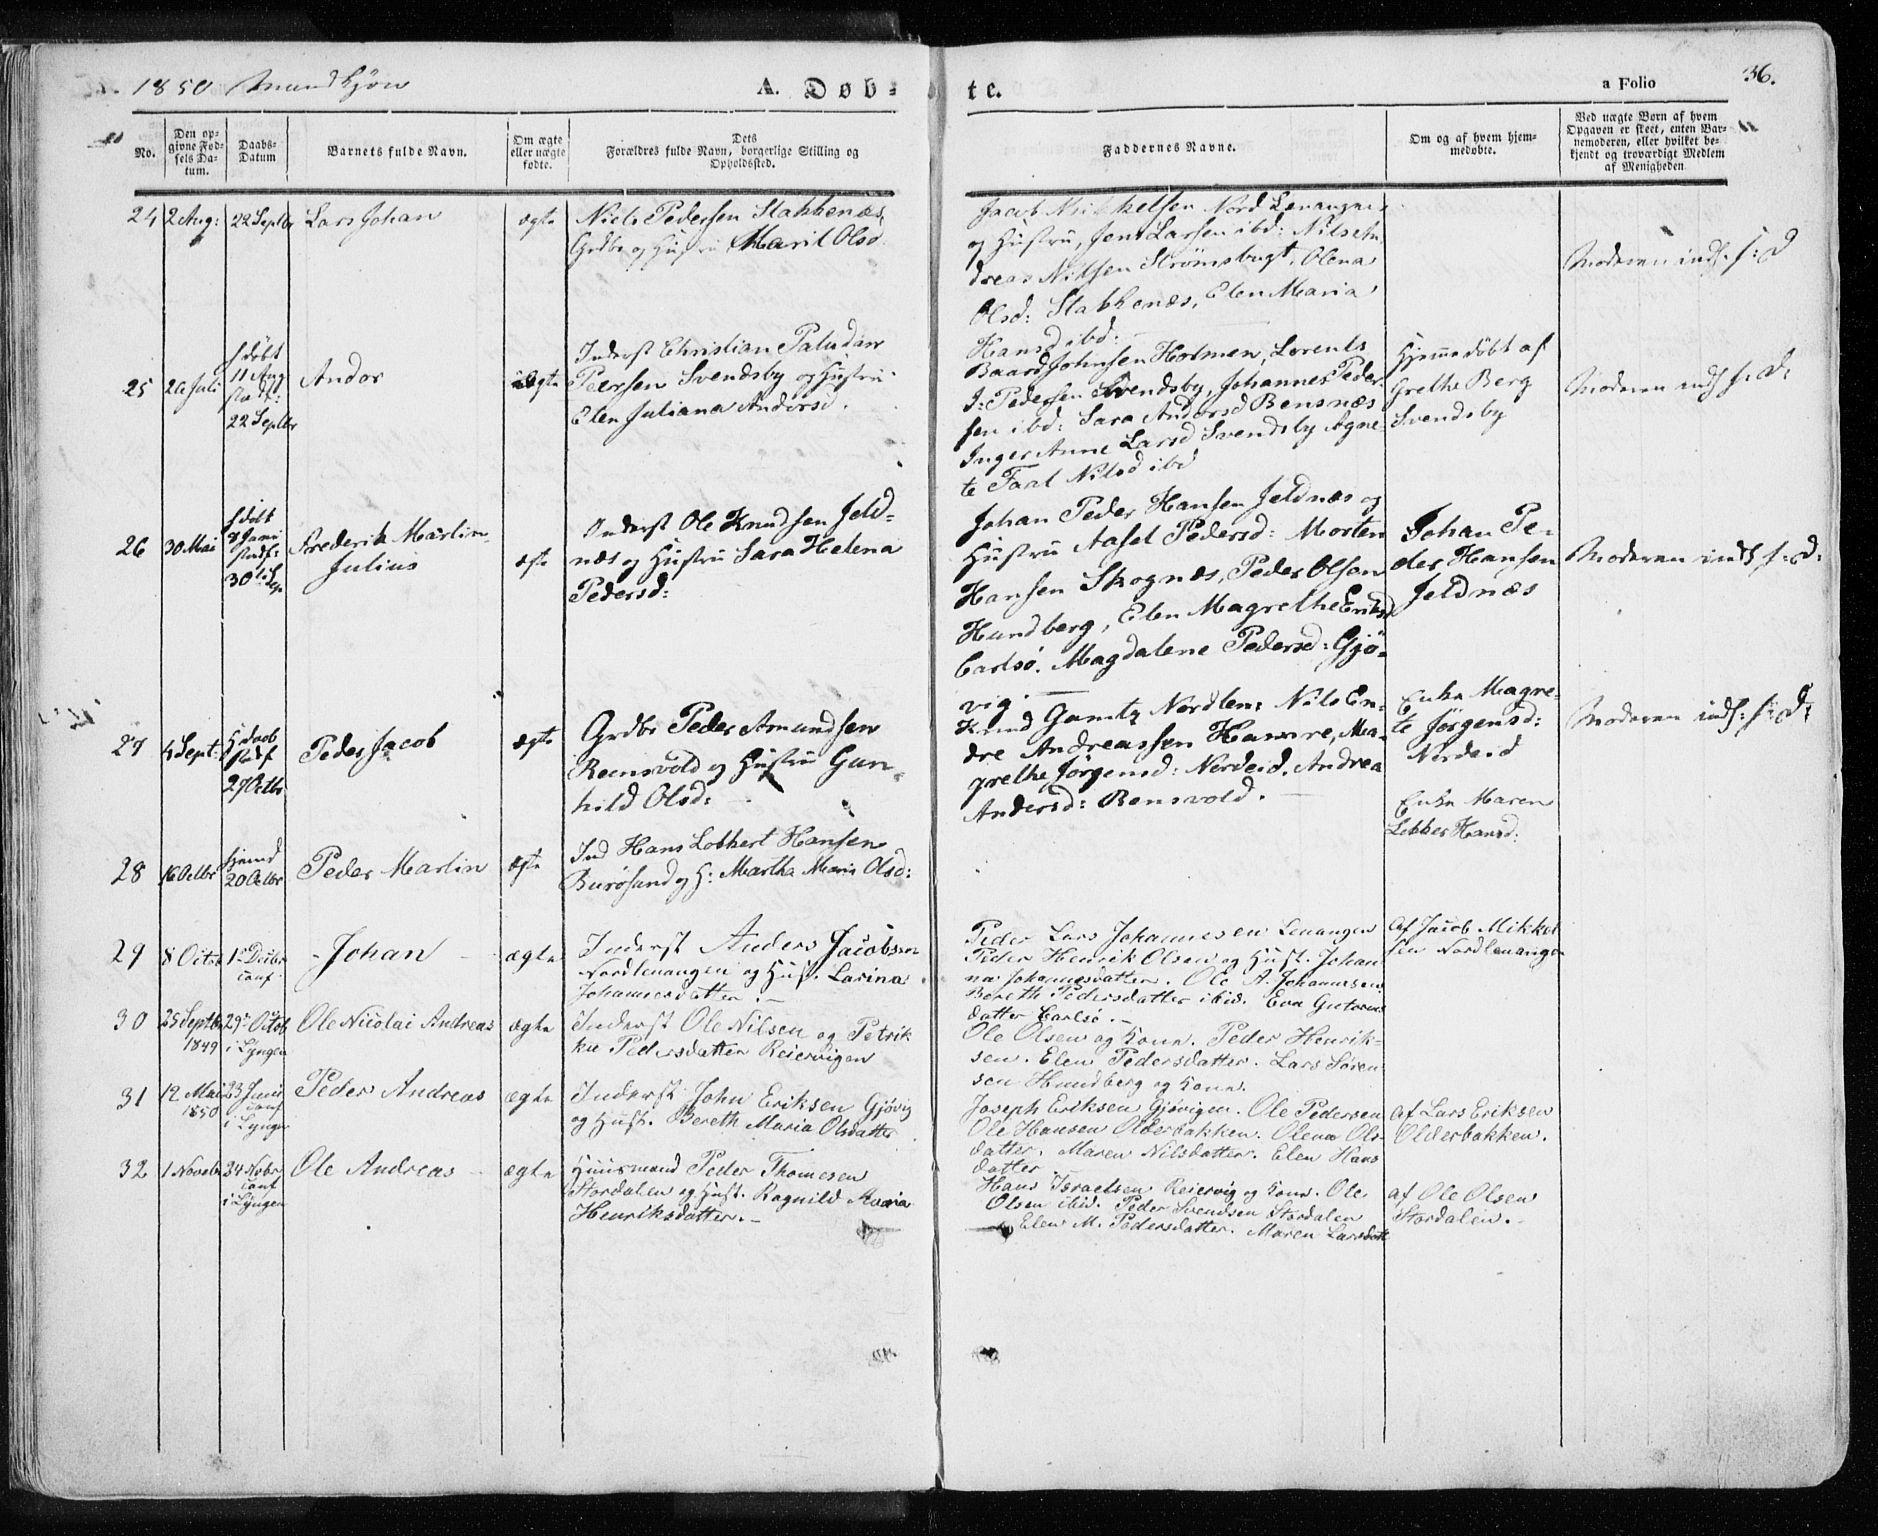 1850 Mandkjøn
A. Døb-
te.
a Folio
36.
No.
Den op-
givne Fød-
sels Da-
tum.
Daabs-
Datum
Barnets fulde Navn.
Om ægte
eller uægte
fødte.
Dets
Forældres fulde Navn, borgerlige Stilling og
Opholdssted.
Faddernes Navne.
Om og af hvem hjem-
medøbte.
Ved uægte Børn af hvem
Opgaven er skeet, enten Bar-
nemoderen, eller hvilket be-
kjendt og troværdigt Medlem
af Menigheden
24
2 Aug:
22 Septbr
Lars Johan
ægte
Niels Pedersen Stakkenæs,
Grdbr og Hustru Marit Olsd
Jacob Mikkelsen Nord Lenangen
og Hustru, Jens Larsen ibd: Nils An
dreas Nilsen Strømsbugt, Olena
Olsd: Stakkenæs, Elen Maria
Hansd ibd:
Moderen inds. f: D
25
20 Juli
hdøbt
11 Aug
stadf:
22 Septbr
Andor
ægte
Inderst Christian Paludan
Peersen Svendsby og Hustru
Elen Juliana Andersd.
Baard Johnsen Holmen, Lorents
I: Pedersen Svendsby, Johannes Peder
sen ibd: Sara Andersd Bensnæs
Inger Anne Larsd Svendsby Agne-
te Taal Nilsd ibd
Hjemmedøbt af
Grethe Berg
Svendsby
Moderen inds f: D:
26
30 Mai
hdøbt
8 Juni
stadf:
30te Sep
Frederik Martin
Julius
ægte
Inderst Ole Knudsen Jeld-
næs og Hustru Sara Helena
Pedersd:
Johan Peder Hansen Jeldnæs og
Hustru Aasel Pedersd: Morten
Hansen Skognæs, Peder Olsen
Hundberg, Elen Magrethe Eriksd
Carlsö. Magdalene Pedersd: Gjø-
vig
Johan Pe-
der Hansen
Jeldnæs
Moderen inds f: D:
27
4 Sept:
Hdaab
stadf
27 Octbr
Peder Jacob
ægte
Grdbr Peder Amundsen
Reensvold og Hustru Gun-
hild Olsd:
Knud Gamtz Nordlen: Nils En-
dre Andreassen Hamre, Ma-
grethe Jørgensd: Nordeid, Andrea
Andersd: Rensvold.
Enke Magre-
te Jørgensd:
Nordeid
Moderen inds: f: D:
28
16 Octbr
hjemd
20 Octbr
Peder Martin
ægte
Ind Hans Lobbert Hansen
Burøsund og H: Martha Maria Olsd:
Enke Maren
Lebber Hansd:
29
8 Octob
1 Decbr
conf.
Johan
ægte
Inderst Anders Jacobsen
Nordlenangen og Hust. Larina
Johannesdatter.
Peder Lars Johannesen Lenangen
Peder Henrik Olsen og Hust. Johan
na Johannesdatter. Ole A. Johannesen
Bereth Pedersdatter ibid. Eva Gutorms
datter Carlsö.
af Jacob Mikkel
sen Nordlenangen
30
25 Septbr
1849
29 Octob
i Lyngen
Ole Nicolai Andreas
ægte
Inderst Ole Nilsen og Petrik
ka Pedersdatter Reiervigen
Ole Olsen og Kone. Peder Henrik-
sen. Elen Pedersdatter. Lars Søren-
sen Hundberg og Kone.
31
12 Mai
1850
23 Juni
conf
i Lyngen
Peder Andreas
ægte
Inderst John Eriksen Gjøvig
og Hust. Bereth Maria Olsdatter
Joseph Eriksen Gjøvigen. Ole Pedersen
Ole Hansen Olderbakken. Olena Ols-
datter. Maren Nilsdatter. Elen Hans
datter
af Lars Eriksen
Olderbakken.
32
1 Novebr
24 Nobr
conf
i Lyngen
Ole Andreas
ægte
Huusmand Peder Thomesen
Stordalen og Hust. Ragnild Maria
Henriksdatter.
Hans Israelsen Reiervig og Kone. Ole
Olsen ibid. Peder Svendsen Stordalen
Elen M. Pedersdatter. Maren Larsdatt
af Ole Olsen
Stordalen.